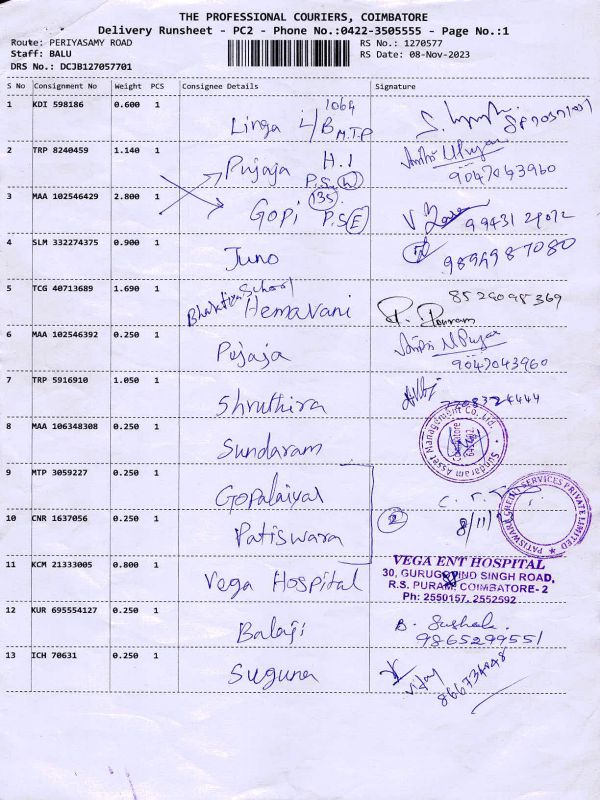 THE PROFESSIONAL COURIERS, COIMBATORE
Delivery Runsheet - PC2 - Phone No.:0422-3505555 - Page No.:1
Route: PERIYASAMY ROAD
RS No.: 1270577
Staff: BALU
RS Date: 08-Nov-2023
DRS No.: DCJB127057701
S No Consignment No Weight PCS Consignee Details Signature
1 KDI 598186 0.600 1 1064
Linga L/B M.T.P
2 TRP 8240459 1.140 1 Pujaja H.I
P.S. W
9047043960
3 MAA 102546429 2.800 1 135
Gopi P.S E
99431 29072
4 SLM 332274375 0.900 1 Juno
9894987080
5 TCG 40713689 1.690 1 School
Hemavani
8524095369
6 MAA 102546392 0.250 1 Pujaja
9047043960
7 TRP 5916910 1.050 1 Shruthira
8 MAA 106348308 0.250 1 Sundaram
Sundaram Asset Management Co. Ltd.
Coimbatore
9 MTP 3059227 0.250 1 Gopalaiyal
10 CNR 1637056 0.250 1 Patiswara
2
8/11/
PRIVATE LIMITED
11 KCM 21333005 0.800 1 Vega Hospital
VEGA ENT HOSPITAL
30, GURUGOVIND SINGH ROAD,
R.S. PURAM, COIMBATORE- 2
Ph: 2550157, 2552592
12 KUR 695554127 0.250 1 Balaji
B. Sushala
9865299551
13 ICH 70631 0.250 1 Suguna
Vijay